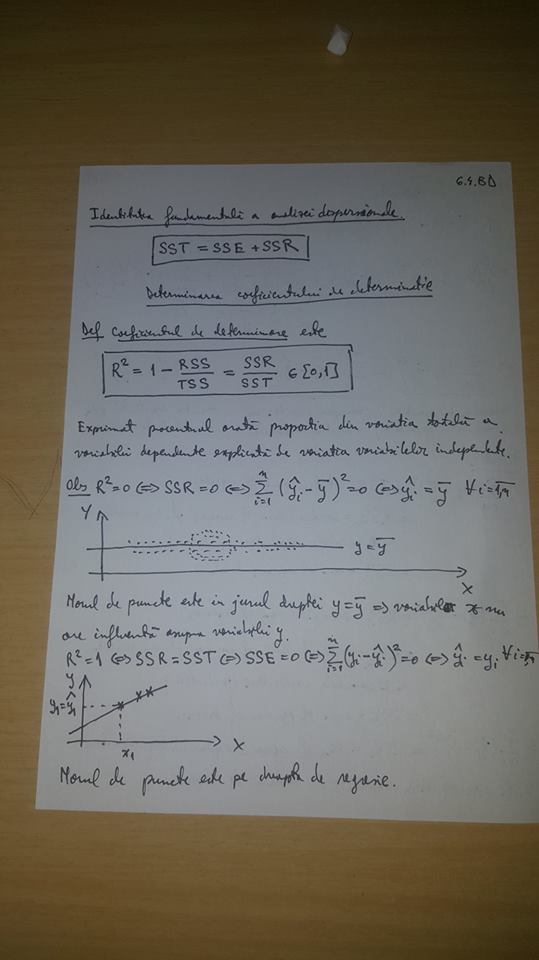 6.4.BD
Identitatea fundamentală a analizei dispersionale.
SST = SSE + SSR
Determinarea coeficientului de determinatie
Def Coeficientul de determinare este
R² = 1 - RSS/TSS = SSR/SST ∈ [0,1]
Exprimat procentual arată proportia din variatia totală a
variabilei dependente explicată de variatia variabilelor independente.
Obs R²=0 <=> SSR=0 <=> ∑_{i=1}^{n} (ŷi - ȳ)² = 0 <=> ŷi = ȳ ∀ i=1,n
Y
y=ȳ
X
Norul de puncte este in jurul dreptei y=ȳ => variabila x nu
are influentă asupra variabilei y.
R²=1 <=> SSR=SST <=> SSE=0 <=> ∑_{i=1}^{n} (yi - ŷi)² = 0 <=> ŷi = yi ∀ i=1,n
Y
y1=ŷ1
x1
X
Norul de puncte este pe dreapta de regresie.